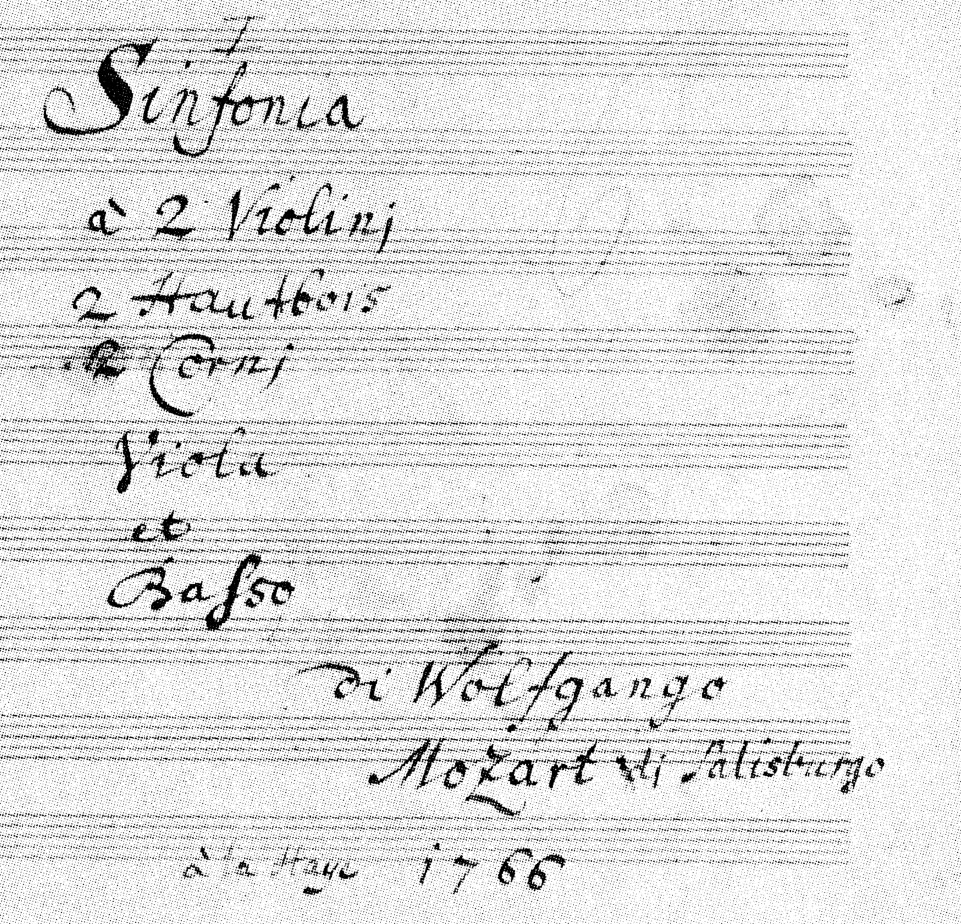 Sinfonia
à 2 Violinj
2 Hautbois
2 Cornj
Viola
et
Basso
di Wolfgango
Mozart di Salisburgo
à la Haye 1766